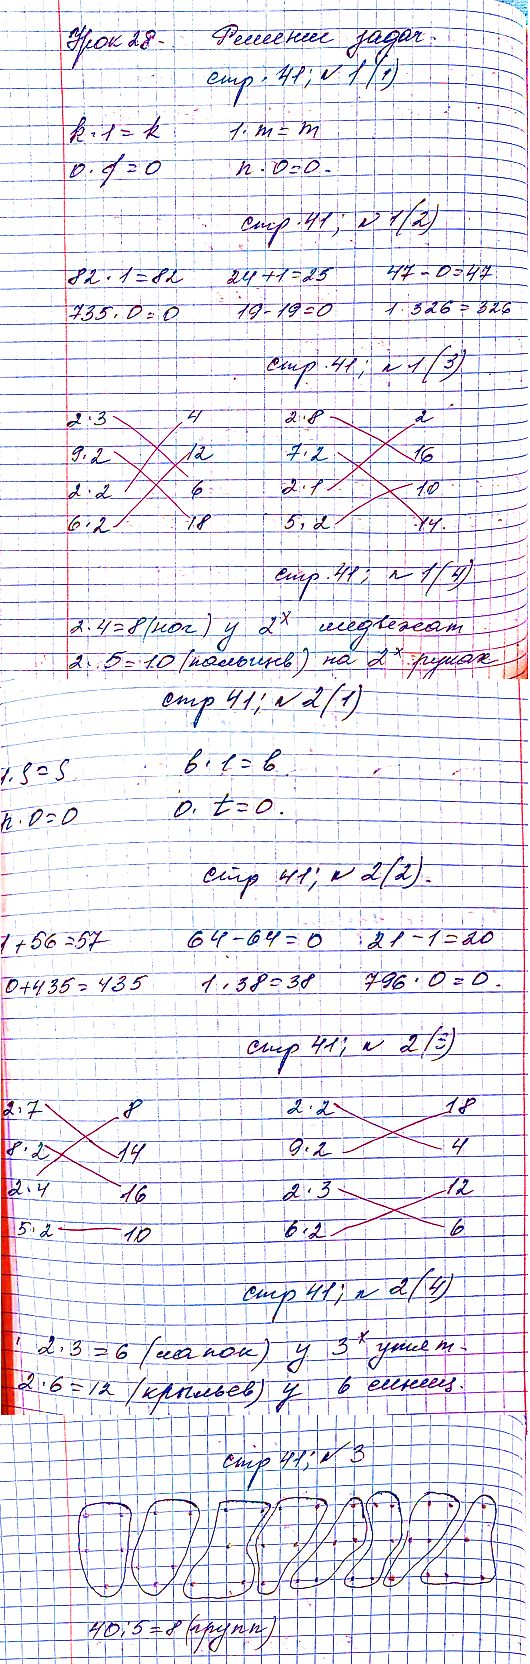 Урок 28. Решение задач.
стр. 41; № 1(1)
k · 1 = k 1 · m = m
0 · d = 0 n · 0 = 0.
стр. 41; № 1(2)
82 · 1 = 82 24 + 1 = 25 47 - 0 = 47
735 · 0 = 0 19 - 19 = 0 1 · 326 = 326
стр. 41; № 1(3)
2 · 3 4 2 · 8 2
9 · 2 12 7 · 2 16
2 · 2 6 2 · 1 10
6 · 2 18 5 · 2 14
стр. 41; № 1(4)
2 · 4 = 8 (ног) у 2х медвежат
2 · 5 = 10 (пальцев) на 2х руках
стр 41; № 2(1)
1 · s = s b · 1 = b
n · 0 = 0 0 · t = 0.
стр 41; № 2(2).
1 + 56 = 57 64 - 64 = 0 21 - 1 = 20
0 + 435 = 435 1 · 38 = 38 796 · 0 = 0.
стр 41; № 2(3)
2 · 7 8 2 · 2 18
8 · 2 14 9 · 2 4
2 · 4 16 2 · 3 12
5 · 2 10 6 · 2 6
стр 41; № 2(4)
2 · 3 = 6 (лапок) у 3х утят.
2 · 6 = 12 (крыльев) у 6 синиц.
стр 41; № 3
40 : 5 = 8 (групп)